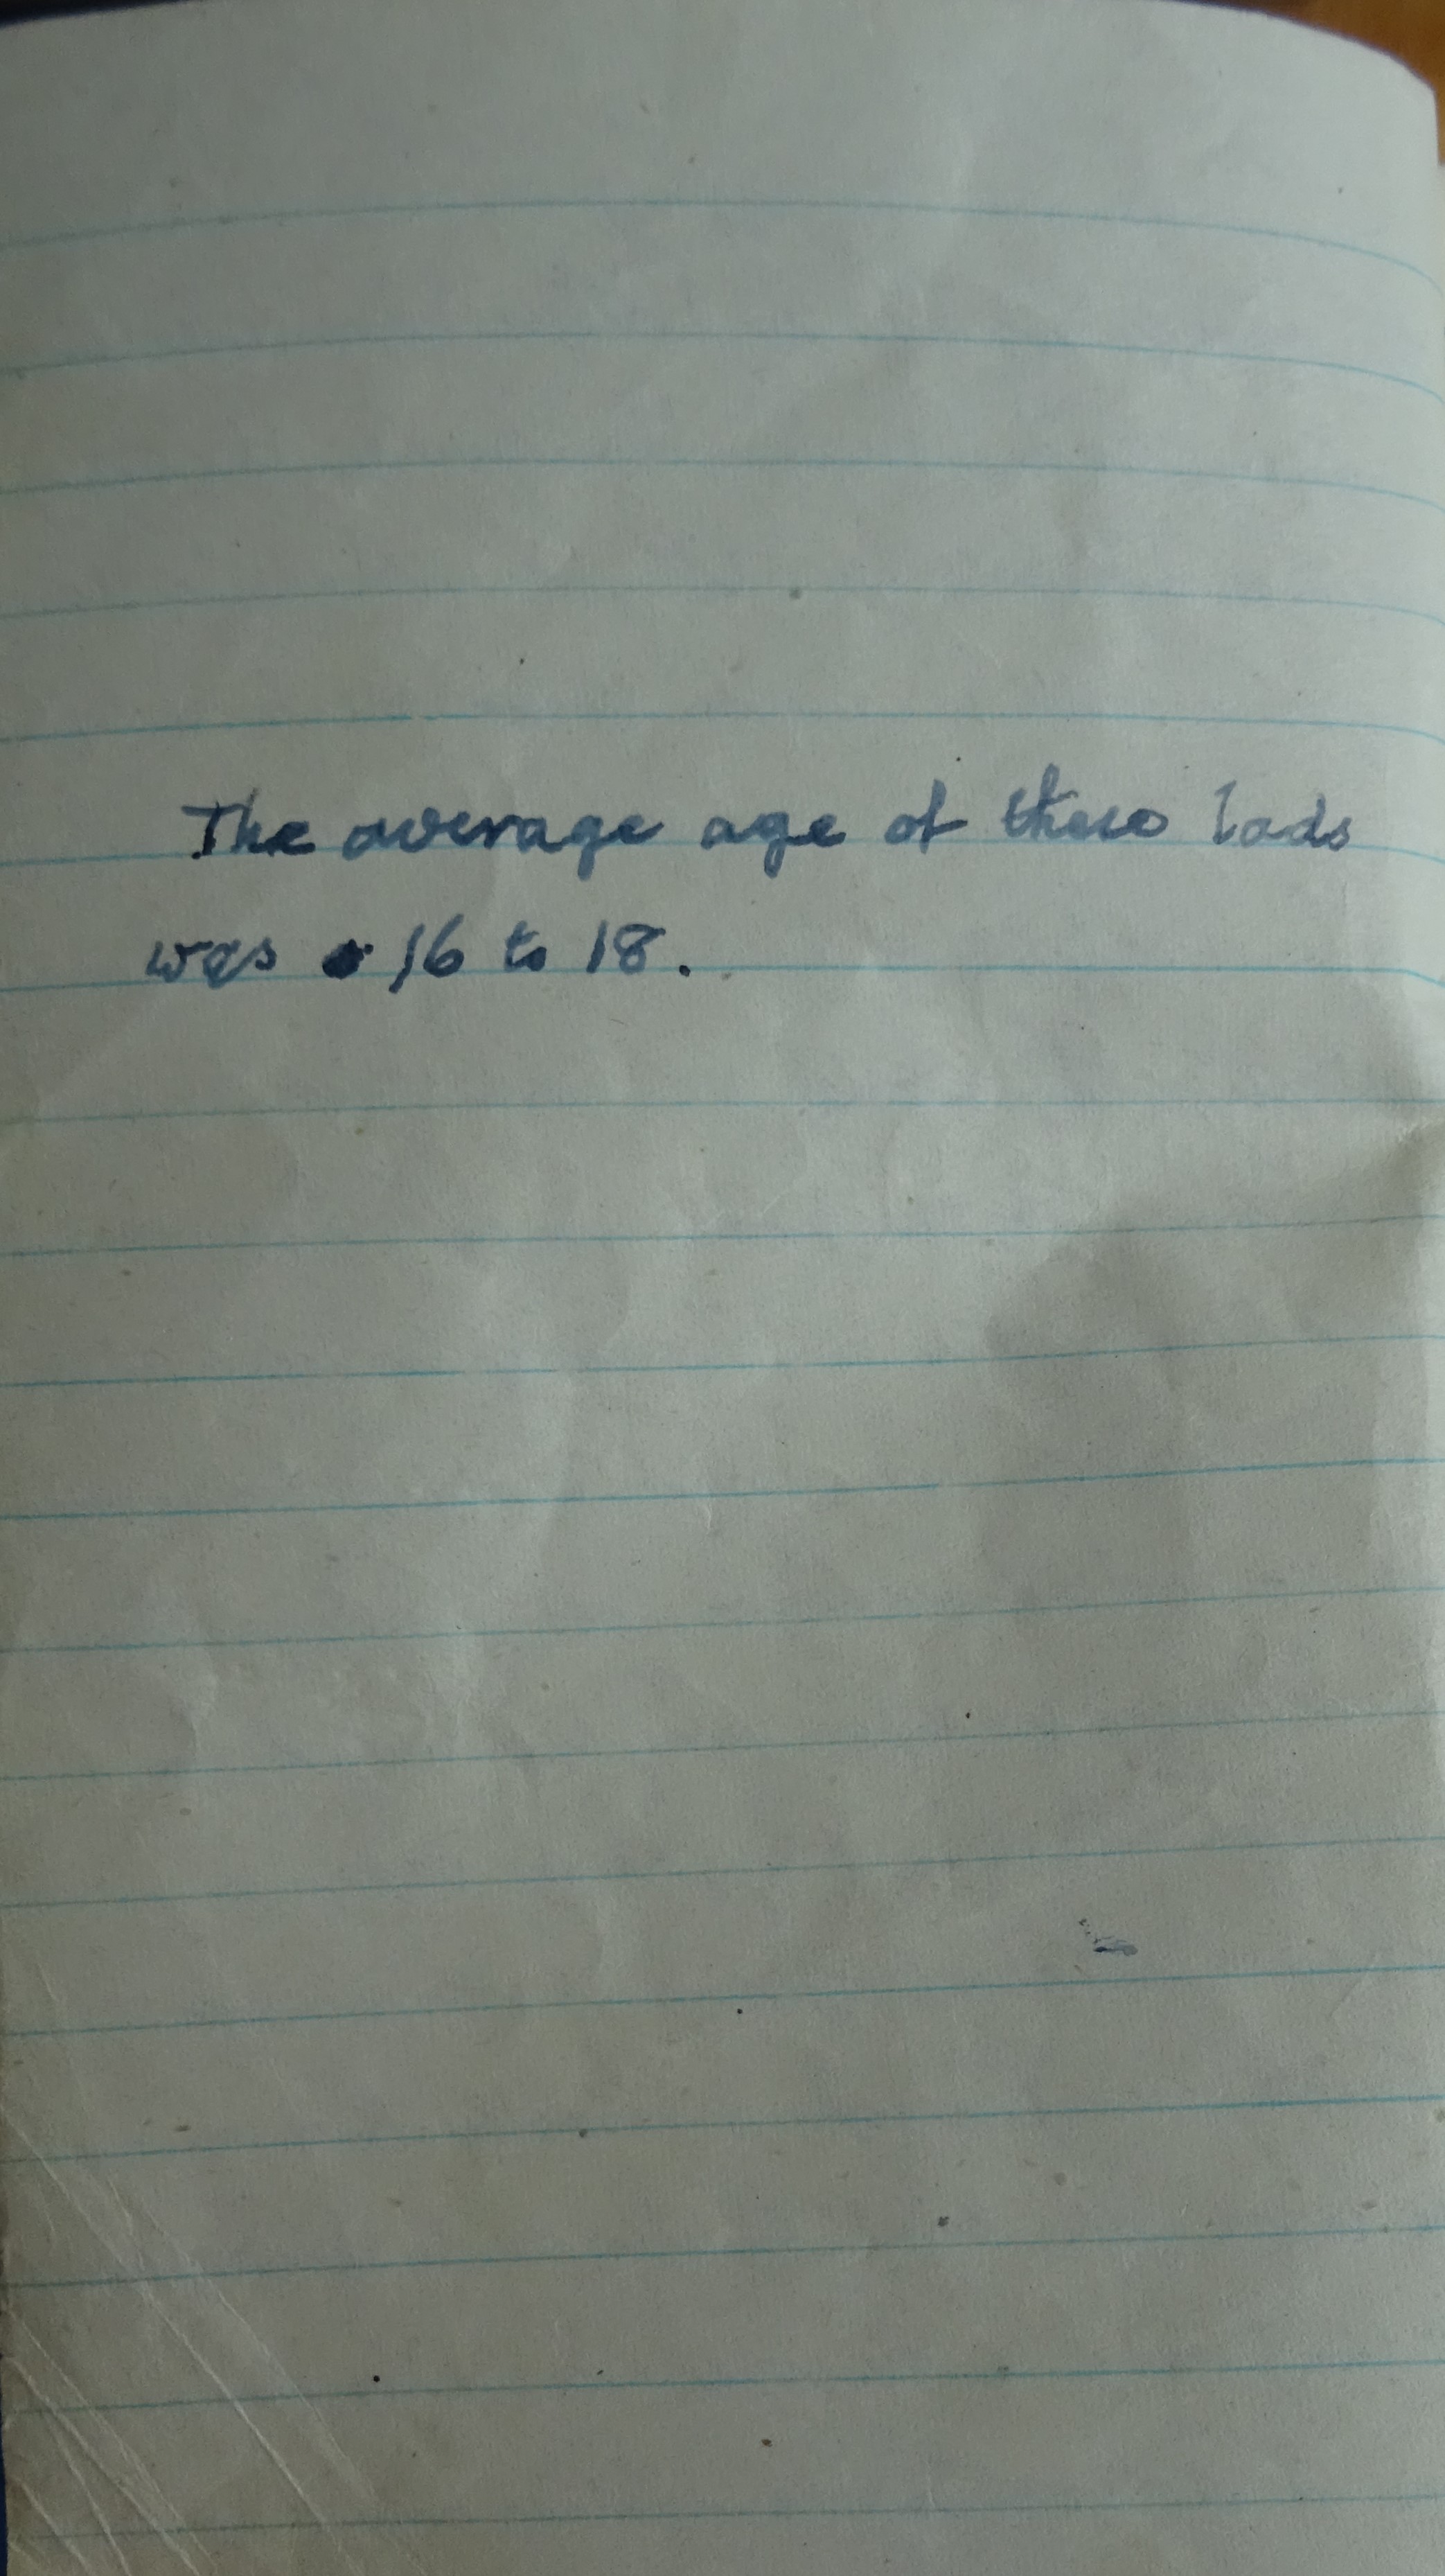 The average age of these lads
was 16 to 18.